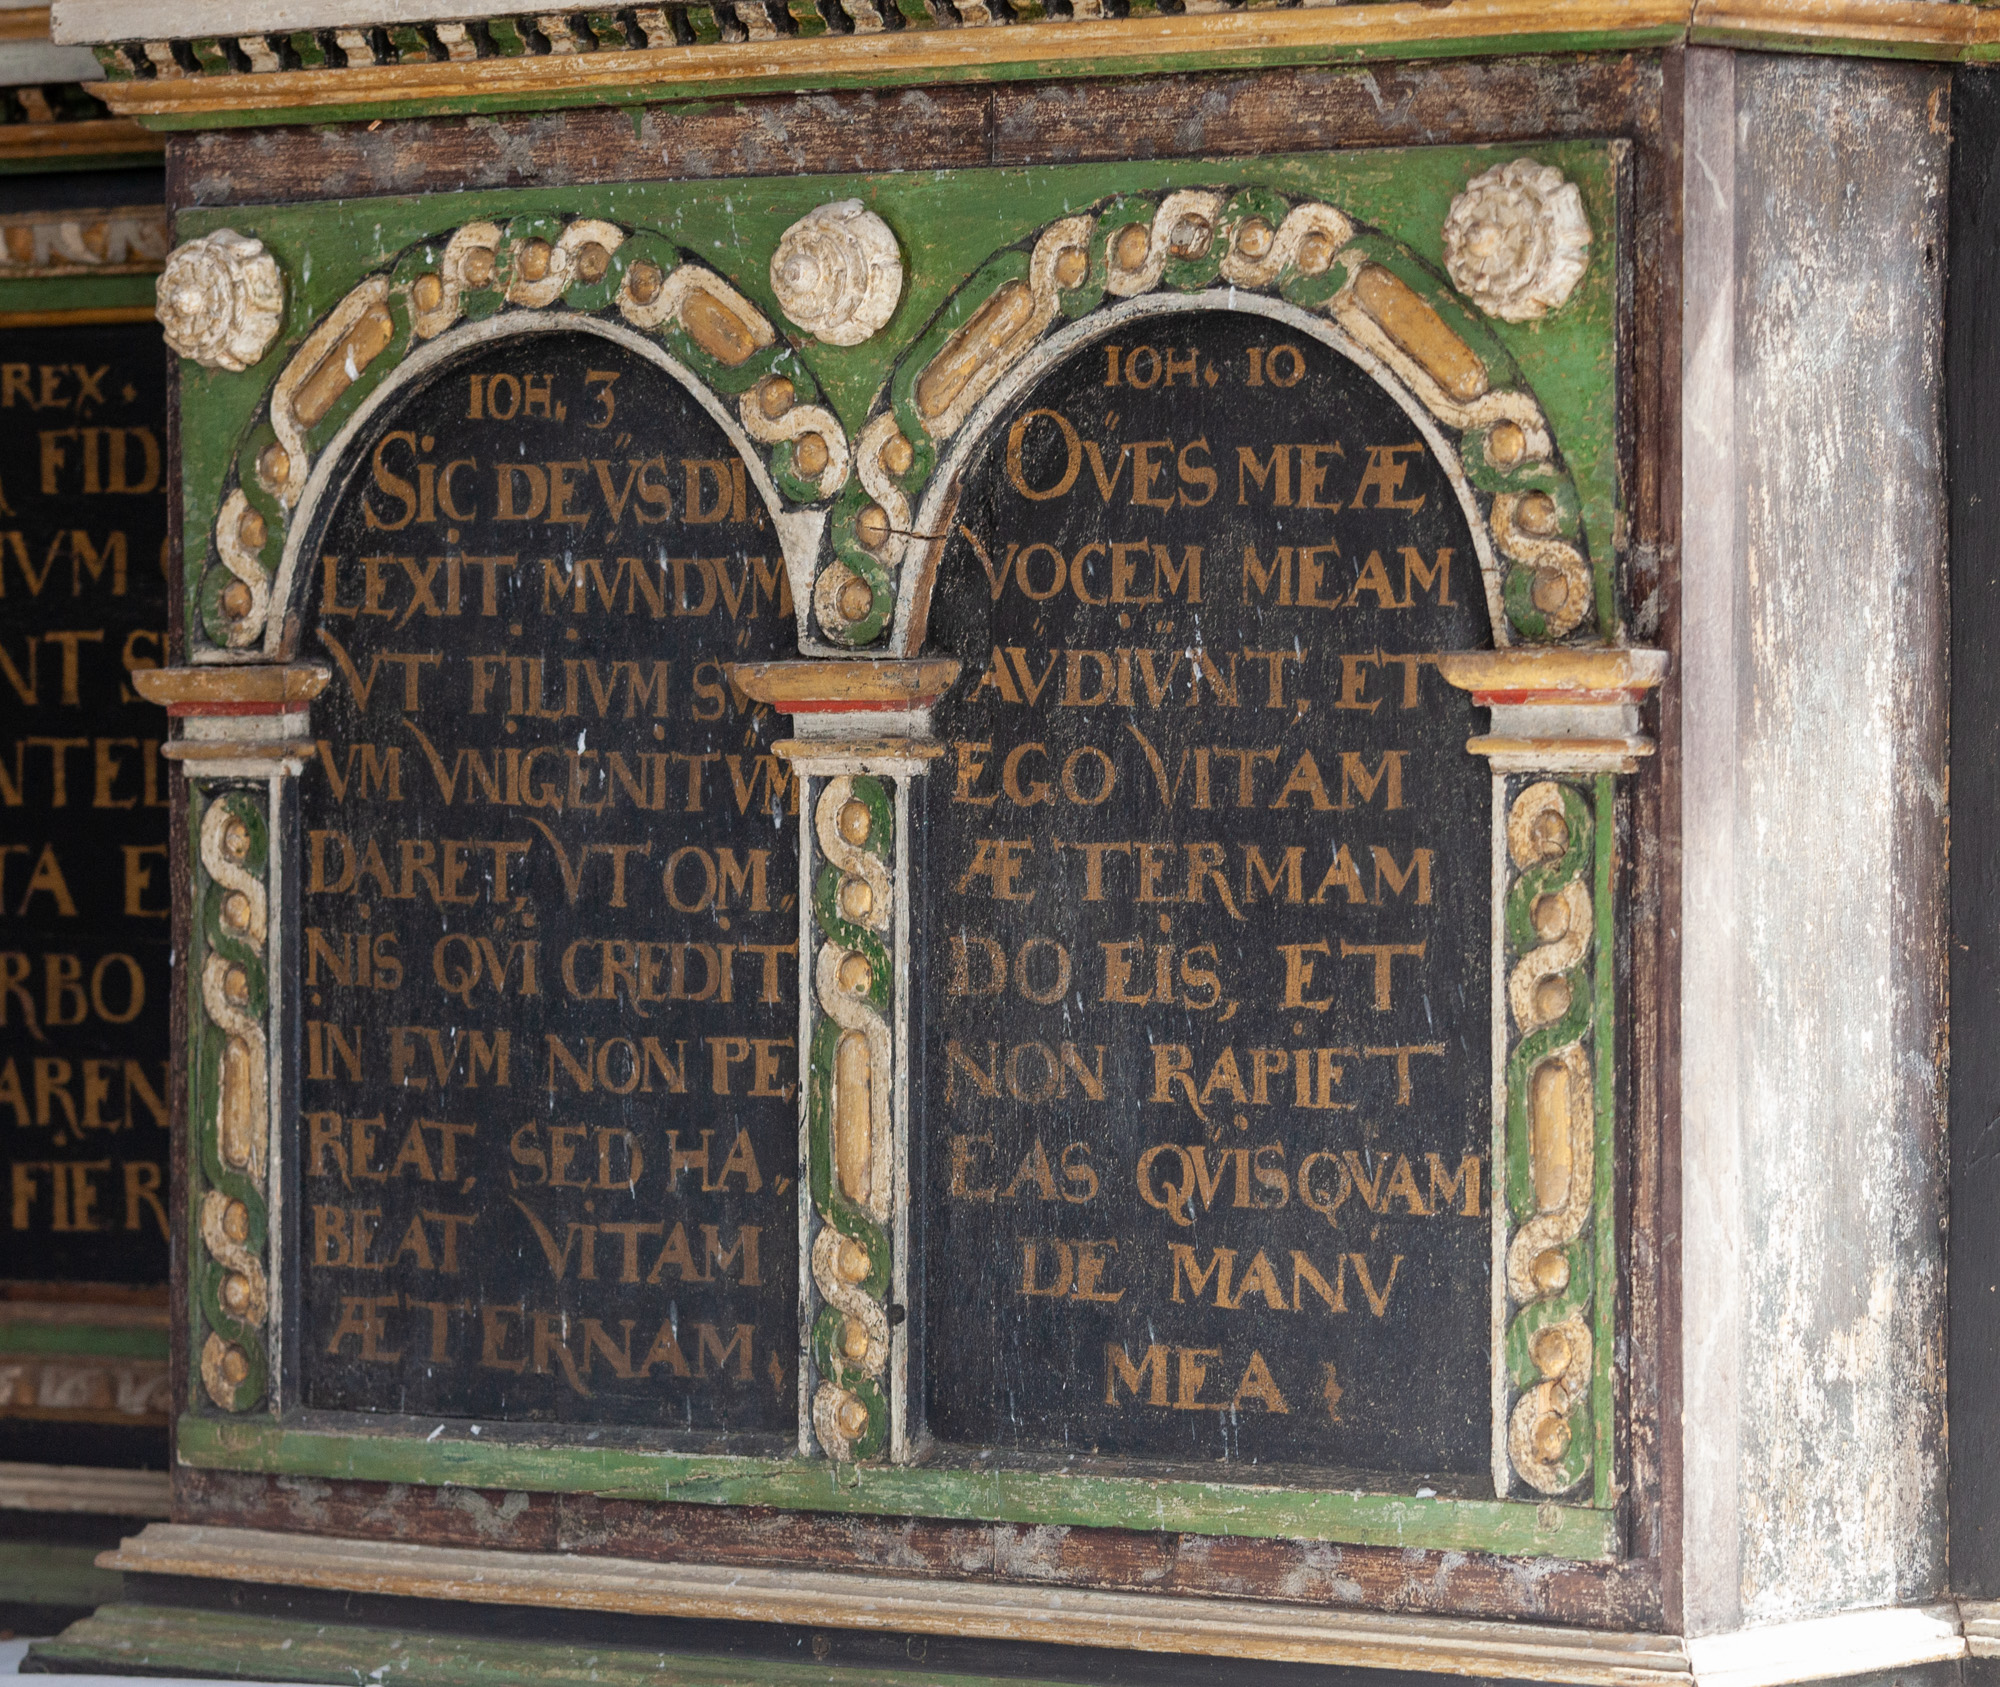 REX.
FID
IVM
NT
NTE
TA E
RBO
AREN
FIER
IOH. 3
SIC DEVS DI
LEXIT MVNDVM
VT FILIVM SV,,
VM VNIGENITVM
DARET, VT OM,,
NIS QVI CREDIT
IN EVM NON PE
REAT, SED HA,,
BEAT VITAM
ÆTERNAM,
IOH. 10
OVES MEÆ
VOCEM MEAM
AVDIVNT, ET
EGO VITAM
ÆTERMAM
DO EIS, ET
NON RAPIET
EAS QVISQVAM
DE MANV
MEA,